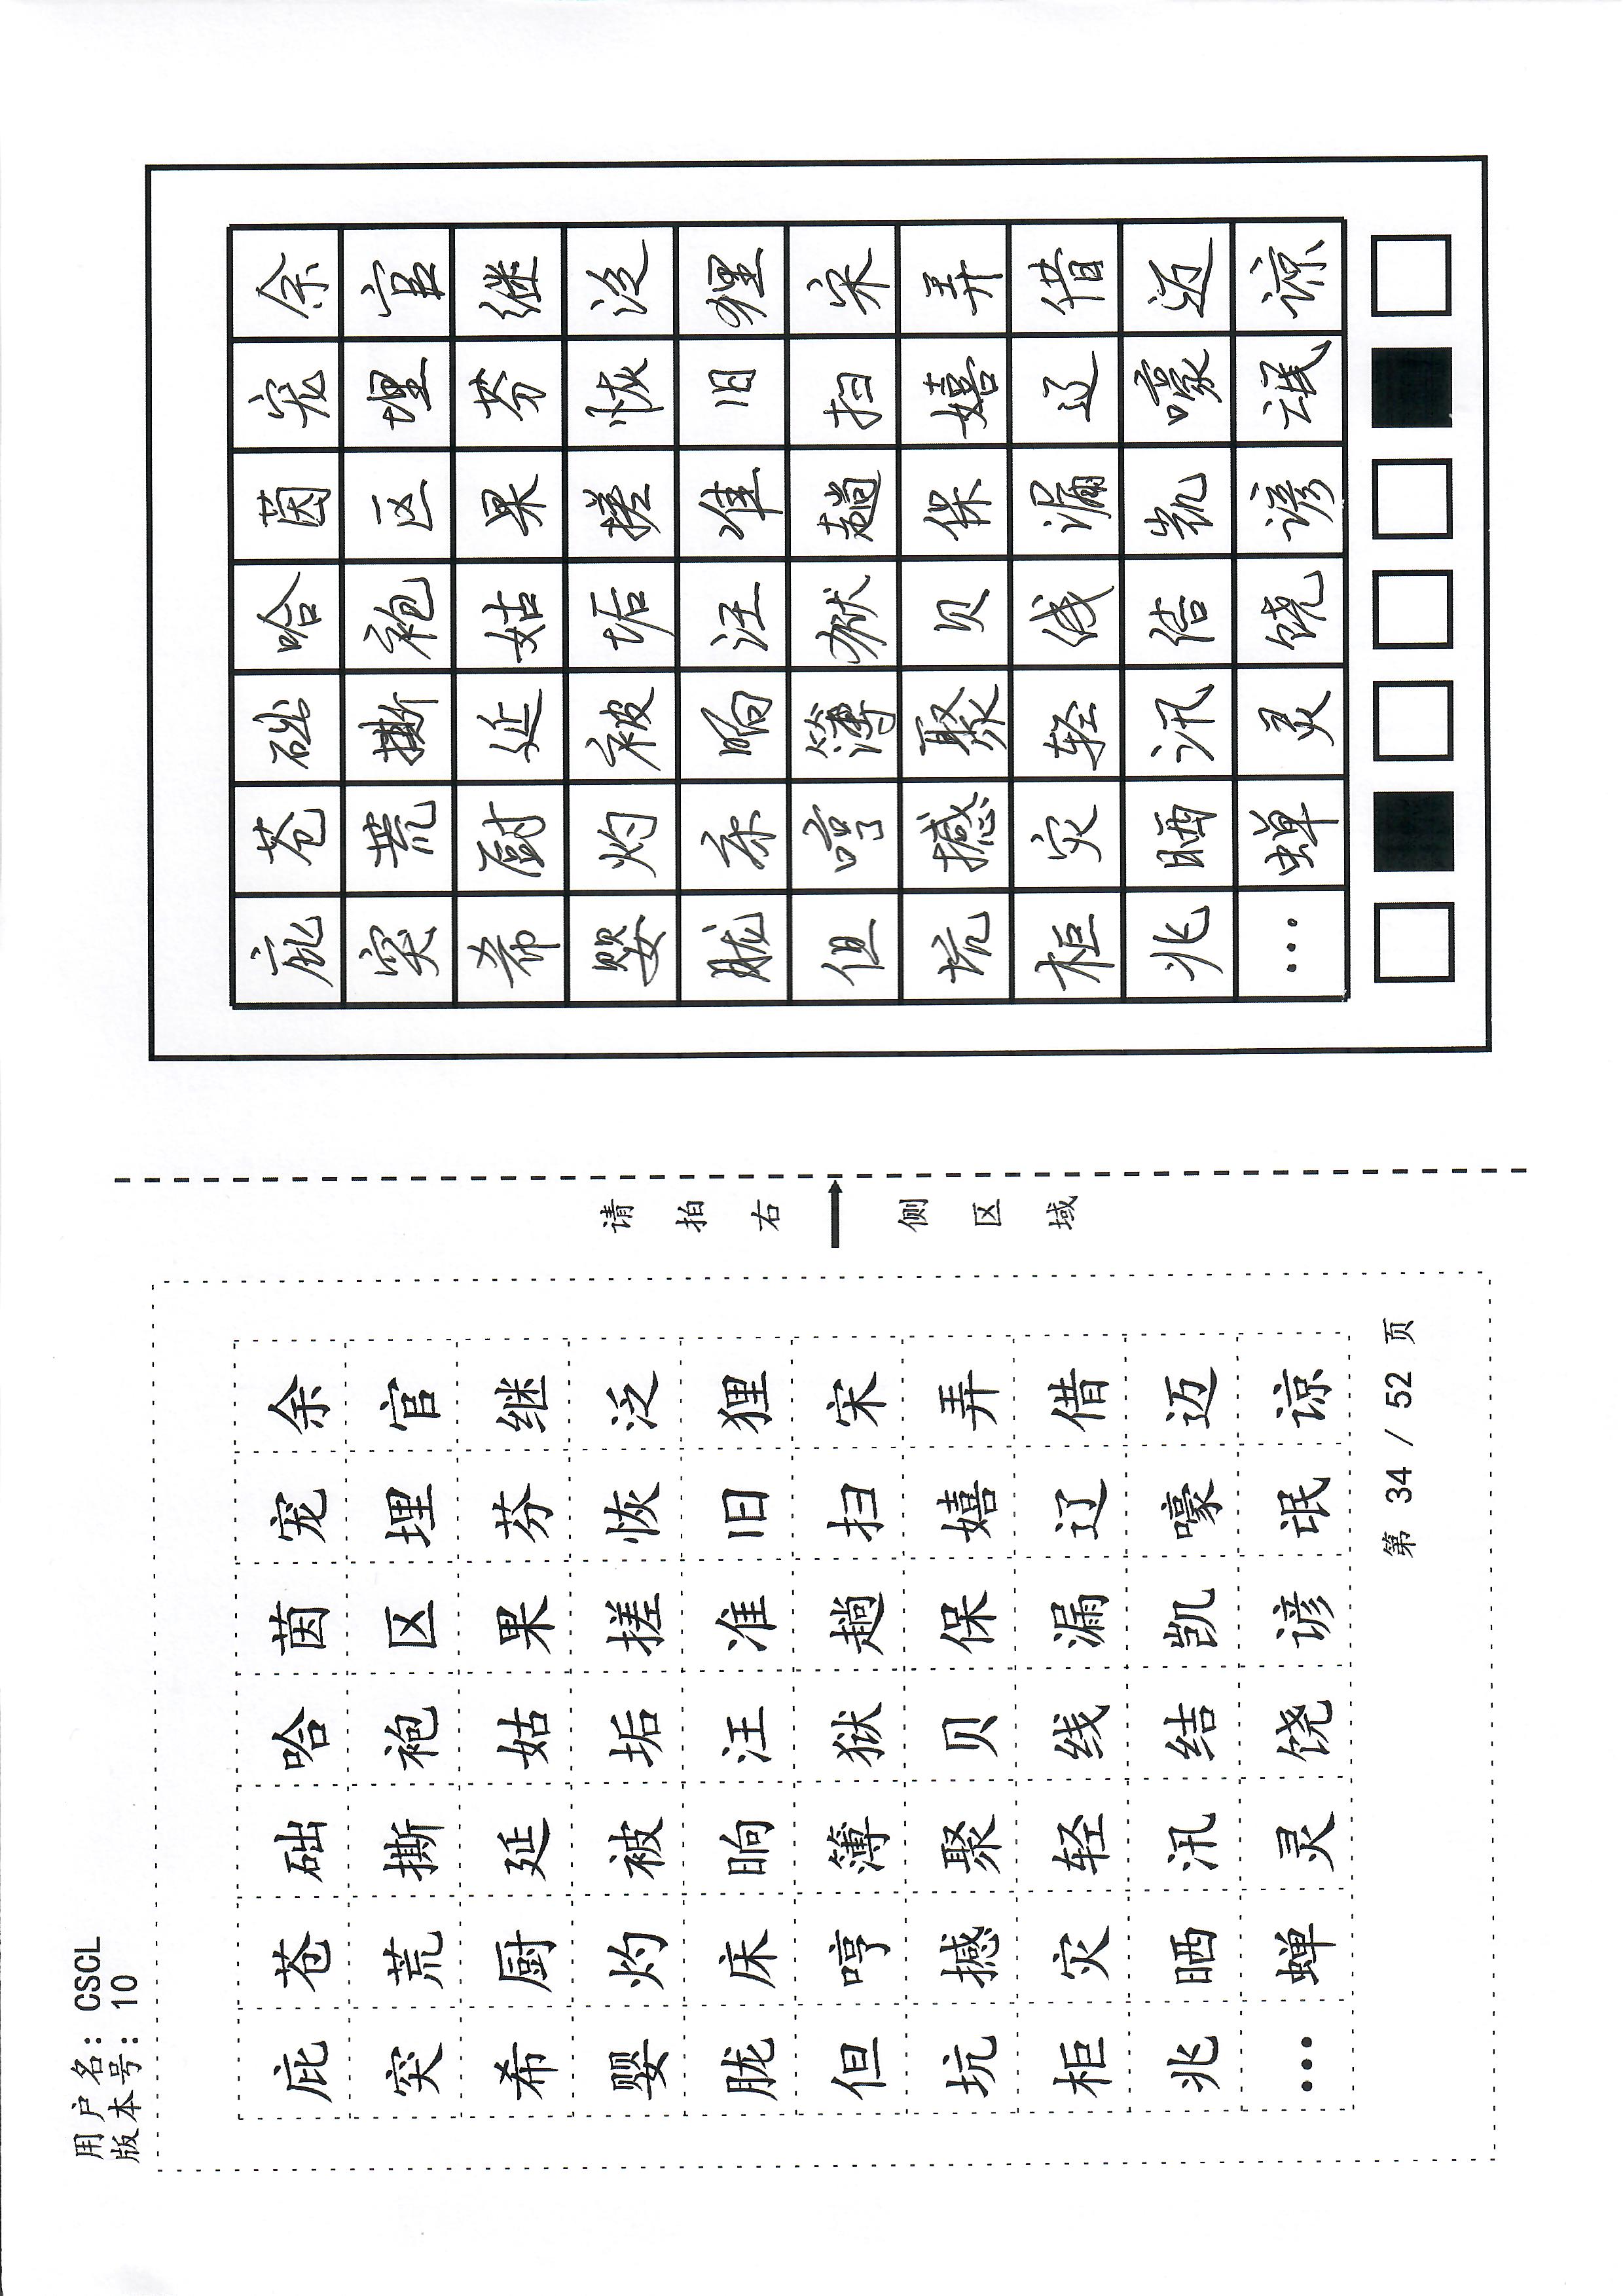 用户名: CSCL
版本号: 10
庇苍础哈茵宠余
突荒撕袍区埋官
希厨延姑果芬继
婴灼被垢搓恢泛
胧床晌汪准旧狸
但哼簿狱趟扫宋
坑撼聚贝保嬉弄
柜灾轻线漏辽借
兆晒汛结凯嚎迈
…蝉灵饶谚氓谅
第 34 / 52 页
请拍右→侧区域
庇苍础哈茵宠余
突荒撕袍区埋官
希厨延姑果芬继
婴灼被垢搓恢泛
胧床晌汪准旧狸
但哼簿狱趟扫宋
坑撼聚贝保嬉弄
柜灾轻线漏辽借
兆晒汛结凯嚎迈
…蝉灵饶谚氓谅